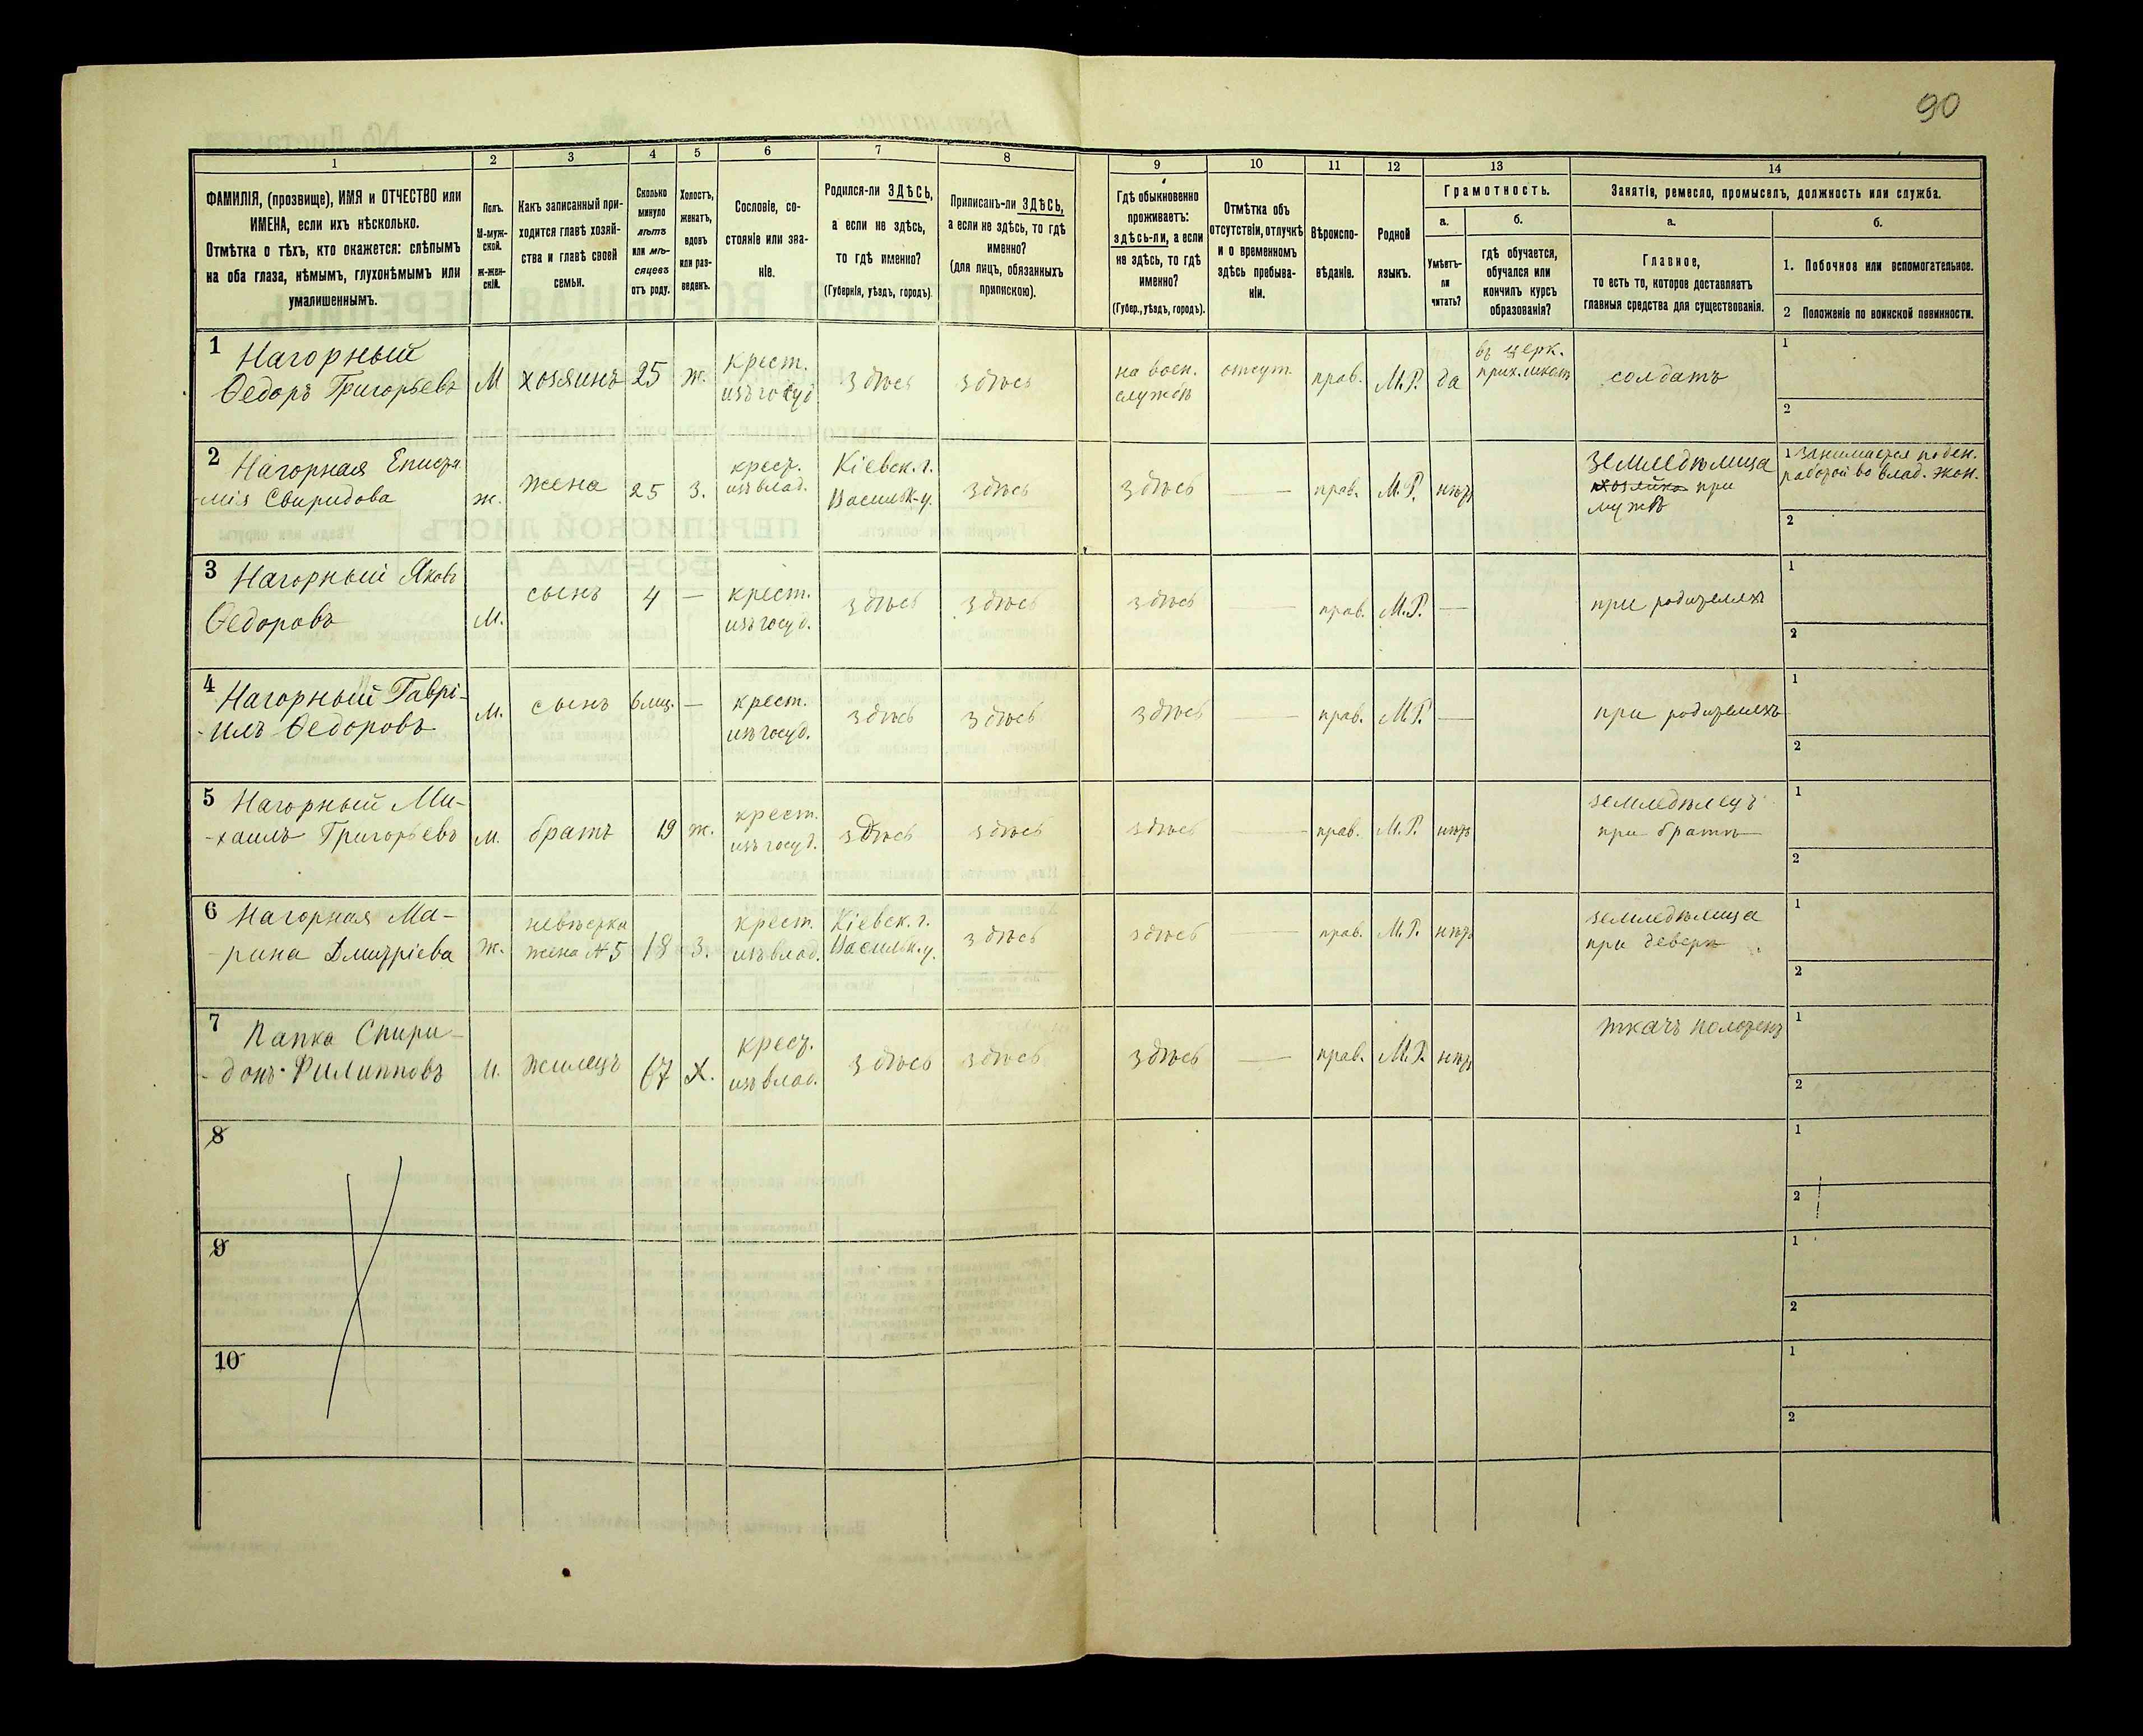 90
1 2 3 4 5 6 7 8 9 10 11 12 13 14
ФАМИЛІЯ, (прозвище), ИМЯ и ОТЧЕСТВО или
ИМЕНА, если ихъ нѣсколько.
Отмѣтка о тѣхъ, кто окажется: слѣпымъ
на оба глаза, нѣмымъ, глухонѣмымъ или
умалишеннымъ.
Полъ.
М-муж-
ской.
ж-жен-
скій.
Какъ записанный при-
ходится главѣ хозяй-
ства и главѣ своей
семьи.
Сколько
минуло
лѣтъ
или мѣ-
сяцевъ
отъ роду.
Холостъ,
женатъ,
вдовъ
или раз-
веденъ.
Сословіе, со-
стояніе или зва-
ніе.
Родился-ли ЗДѢСЬ,
а если не здѣсь,
то гдѣ именно?
(Губернія, уѣздъ, городъ).
Приписанъ-ли ЗДѢСЬ,
а если не здѣсь, то гдѣ
именно?
(для лицъ, обязанныхъ
припискою).
Гдѣ обыкновенно
проживаетъ:
здѣсь-ли, а если
не здѣсь, то гдѣ
именно?
(Губер., уѣздъ, городъ).
Отмѣтка объ
отсутствіи, отлучкѣ
и о временномъ
здѣсь пребыва-
ніи.
Вѣроиспо-
вѣданіе.
Родной
языкъ.
Грамотность.
а.
Умѣетъ-
ли
читать?
б.
гдѣ обучается,
обучался или
кончилъ курсъ
образованія?
Занятіе, ремесло, промыселъ, должность или служба.
а.
Главное,
то есть то, которое доставляетъ
главныя средства для существованія.
б.
1. Побочное или вспомогательное.
2 Положеніе по воинской повинности.
1 Нагорный
Ѳедоръ Григорьевъ
М
хозяинъ
25
ж.
крест.
изъ госуд
здѣсь
здѣсь
на воен.
службѣ
отсут.
прав.
М.Р.
да
въ церк.
прих. школѣ
солдатъ
1
2
2 Нагорная Еписти
-мія Свиридова
ж.
жена
25
з.
крест.
изъ влад.
Кіевск. г.
Васильк. у.
здѣсь
здѣсь
—
прав.
М.Р.
нѣтъ
земледѣлица
хозяйка при
мужѣ
1 Занимается поден.
работой во влад. экон.
2
3 Нагорный Яковъ
Ѳедоровъ
М.
сынъ
4
—
крест.
изъ госуд.
здѣсь
здѣсь
здѣсь
—
прав.
М.Р.
—
при родителяхъ
1
2
4 Нагорный Гаврі-
-илъ Ѳедоровъ
М.
сынъ
6 мц.
—
крест.
изъ госуд.
здѣсь
здѣсь
здѣсь
—
прав.
М.Р.
—
при родителяхъ
1
2
5 Нагорный Ми-
-хаилъ Григорьевъ
М.
братъ
19
ж.
крест.
изъ госуд.
здѣсь
здѣсь
здѣсь
—
прав.
М.Р.
нѣтъ
земледѣлецъ
при братѣ
1
2
6 Нагорная Ма-
-рина Дмитріева
ж.
невѣстка
жена №5
18
з.
крест.
изъ влад.
Кіевск. г.
Васильк. у.
здѣсь
здѣсь
—
прав.
М.Р.
нѣтъ
земледѣлица
при деверѣ
1
2
7 Папка Спири-
-донъ Филипповъ
М.
жилецъ
67
х.
крест.
изъ влад.
здѣсь
здѣсь
здѣсь
—
прав.
М.Р.
нѣтъ
ткачъ полотенъ
1
2
8
1
2
9
1
2
10
1
2